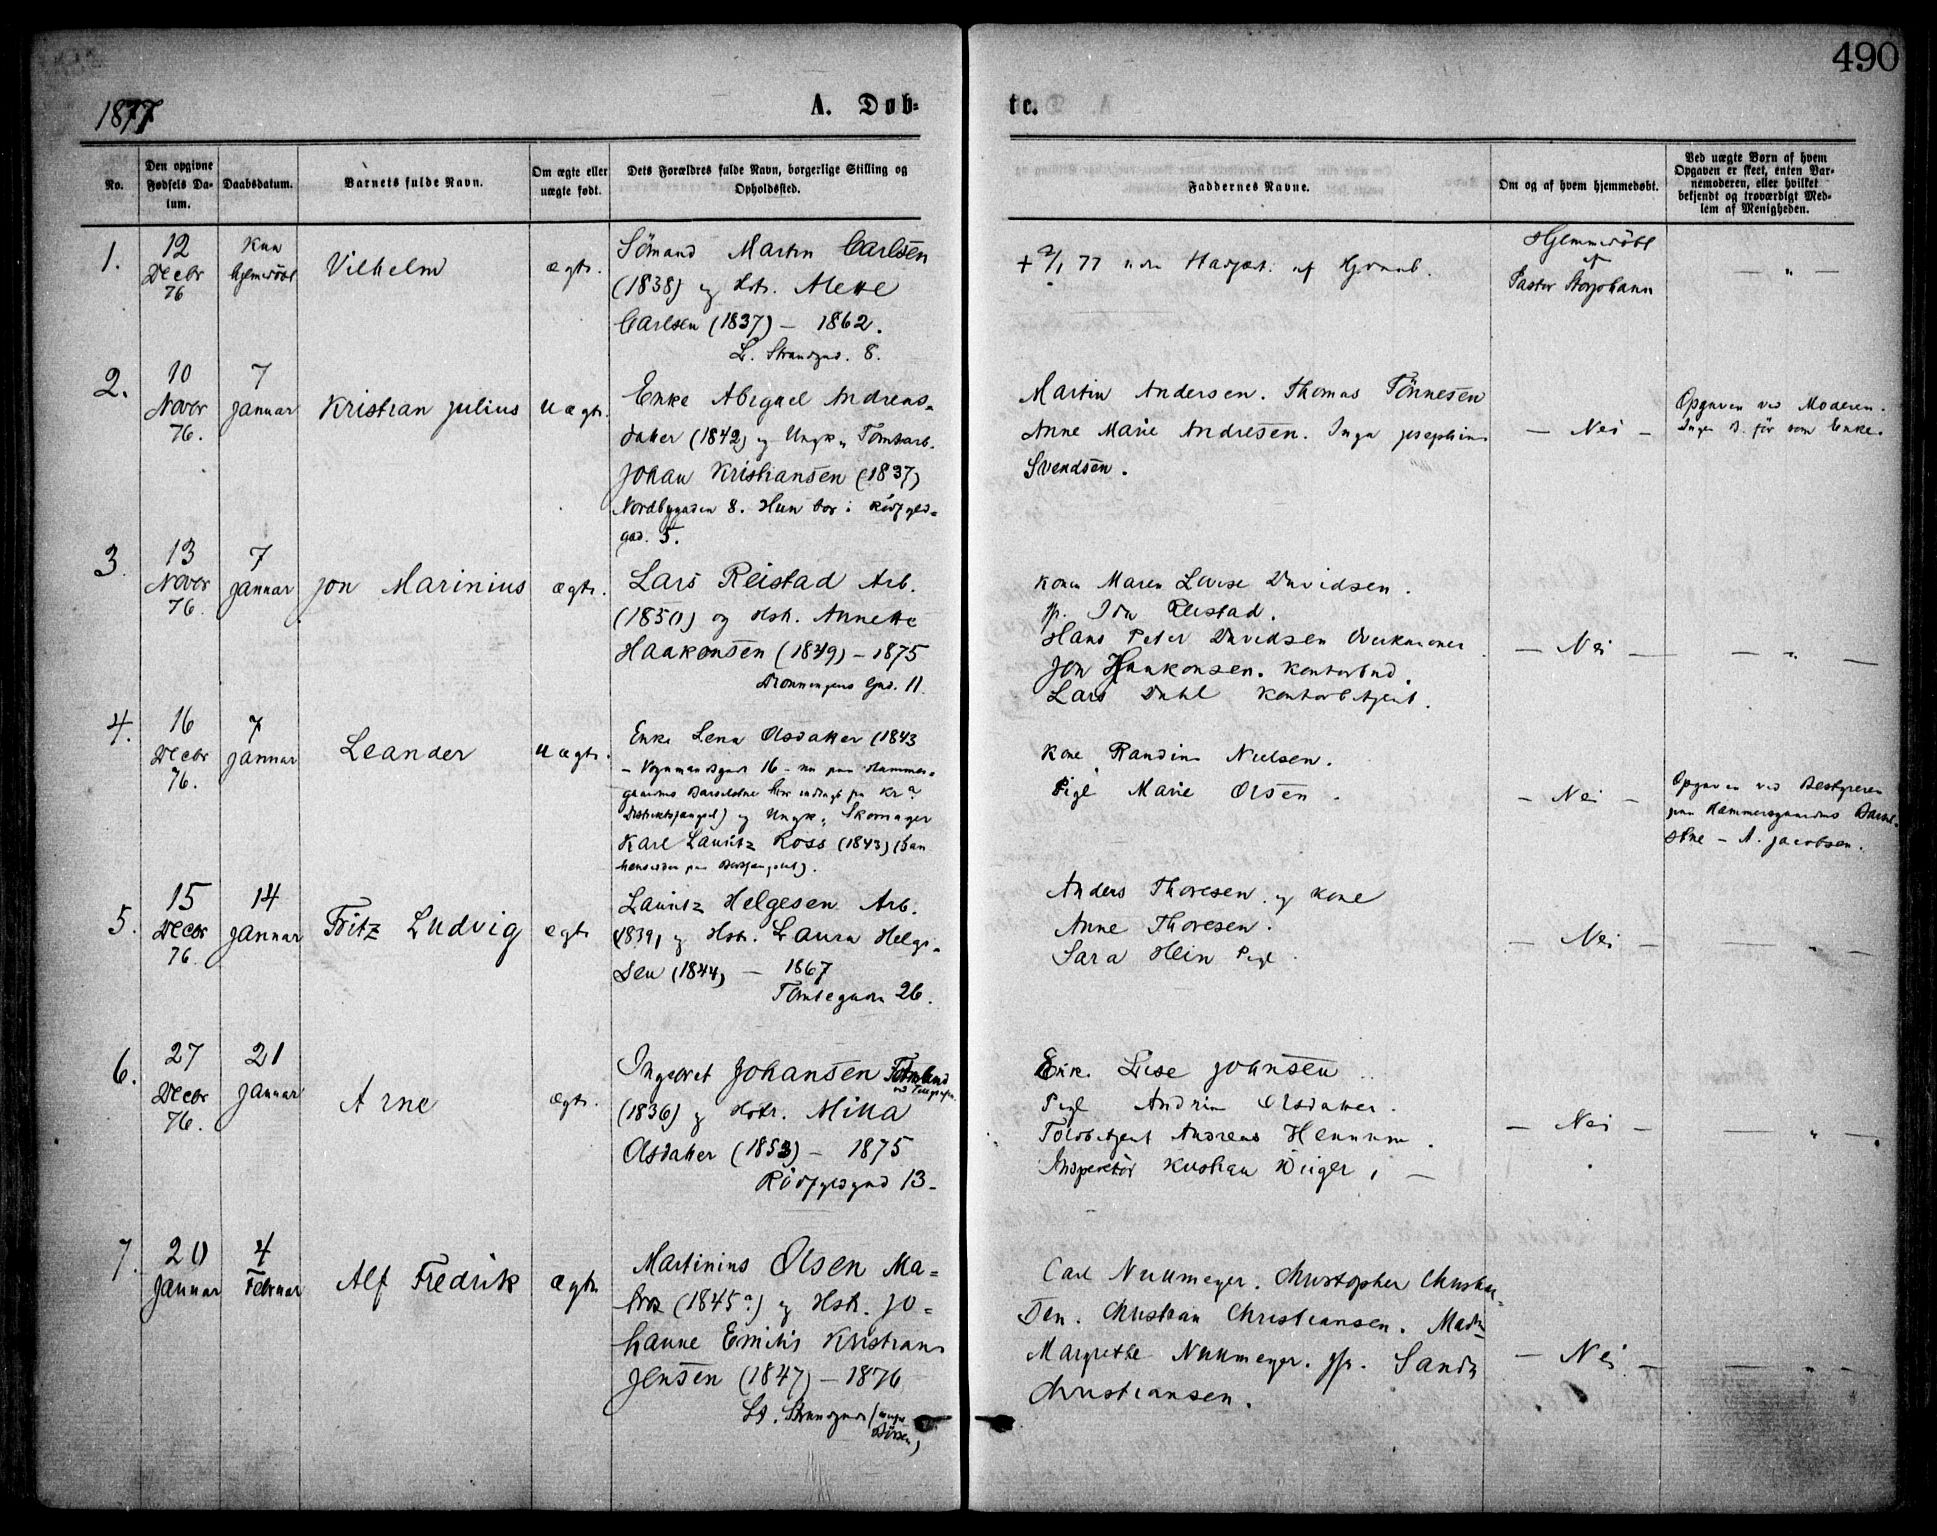 490
1877
A. Døb-
te.
No.
Den opgivne Fødsels Da-
tum.
Daabsdatum.
Barnets fulde Navn.
Om ægte eller
uægte født.
Dets Forældres fulde Navn, borgerlige Stilling og
Opholdssted.
Faddernes Navne.
Om og af hvem hjemmedøbt.
Ved uægte Børn af hvem
Opgaven er skeet, enten Bar-
nemoderen, eller hvilket
bekjendt og troværdigt Med-
lem af Menigheden.
1.
12
Decbr
76
Kun
hjemdøbt
Vilhelm
ægte.
Sömand Martin Carlsen
(1838) og Hstr. Alette
Carlsen (1837) – 1862.
L. Strandgad. 8.
+ 2/1 77 af
Hjemmedöbt
af
Pastor Storjohann
— " —
2.
10
Novbr
76.
7
Januar
Kristian Julius
Uægte.
Enke Abigael Andreas-
datter (1842) og Ungk. Tomtearb.
Johan Kristiansen (1837)
Nordbygaden 8. Hun bor i Rödfyld-
gad. 5.
Martin Andersen. Thomas Tönnesen
Anne Marie Andresen. Inga Josephine
Svendsen.
— Nei —
Opgaven ved Moderen.
Ingen B. för som Enke.
3.
13
Novbr
76.
7
Januar
Jon Marinius
ægte.
Lars Reistad Arb.
(1850) og Hstr. Annette
Haakonsen (1849) – 1875
Dronningens Gad. 11.
Kone Maren Lovise Davidsen.
Ida Reistad.
Hans Peter Davidsen
Jon Haakonsen. Kontorbud.
Lars Dahl Kontorbetjent.
— Nei —
— " —
4.
16
Decbr
76.
7
Januar
Leander
Uægte.
Enke Lena Olsdatter (1843
– Vognmandsgade 16 – nu paa Hammers-
gaardens Barselstue her indlagt fra Kra
Distriktsfængsel) og Ungk. Skomager
Karl Lauritz Ross (1843) (han
Kone Randine Nielsen.
Pige Marie Olsen.
— Nei —
Opgaven ved Bestyreren
paa Hammersgaardens Barsel-
stue – A. Jacobsen.
5.
15
Decbr
76.
14
Januar
Fritz Ludvig
ægte
Lauritz Helgesen Arb.
(1839) og Hstr. Laura Helge-
sen (1844) – 1867
Tomtegaden 26.
Anders Thoresen og Kone
Anne Thoresen.
Sara Hein Pige.
— Nei —
— " —
6.
27
Decbr
76.
21
Januar
Arne
ægte.
Ingebret Johansen
ved Telegrafen.
(1836) og Hstr. Milla
Olsdatter (1853) – 1875
Rödfyldgad 13.
Enke Lise Johnsen
Pige Andrine Olsdatter.
Toldbetjent Andreas Hennum.
Inspektör Kristian
— Nei —
— " —
7.
20
Januar
4
Februar
Alf Fredrik
ægte
Martinius Olsen Ma-
tros (1845) og Hstr. Jo-
hanne Emilie Kristians
Jensen (1847) – 1876
L. Strandgade
Carl Nullmeyer. Christopher Christian-
sen. Christian Christiansen. Madm
Margrethe Nullmeyer. Sanda
Christiansen.
— Nei —
— " —